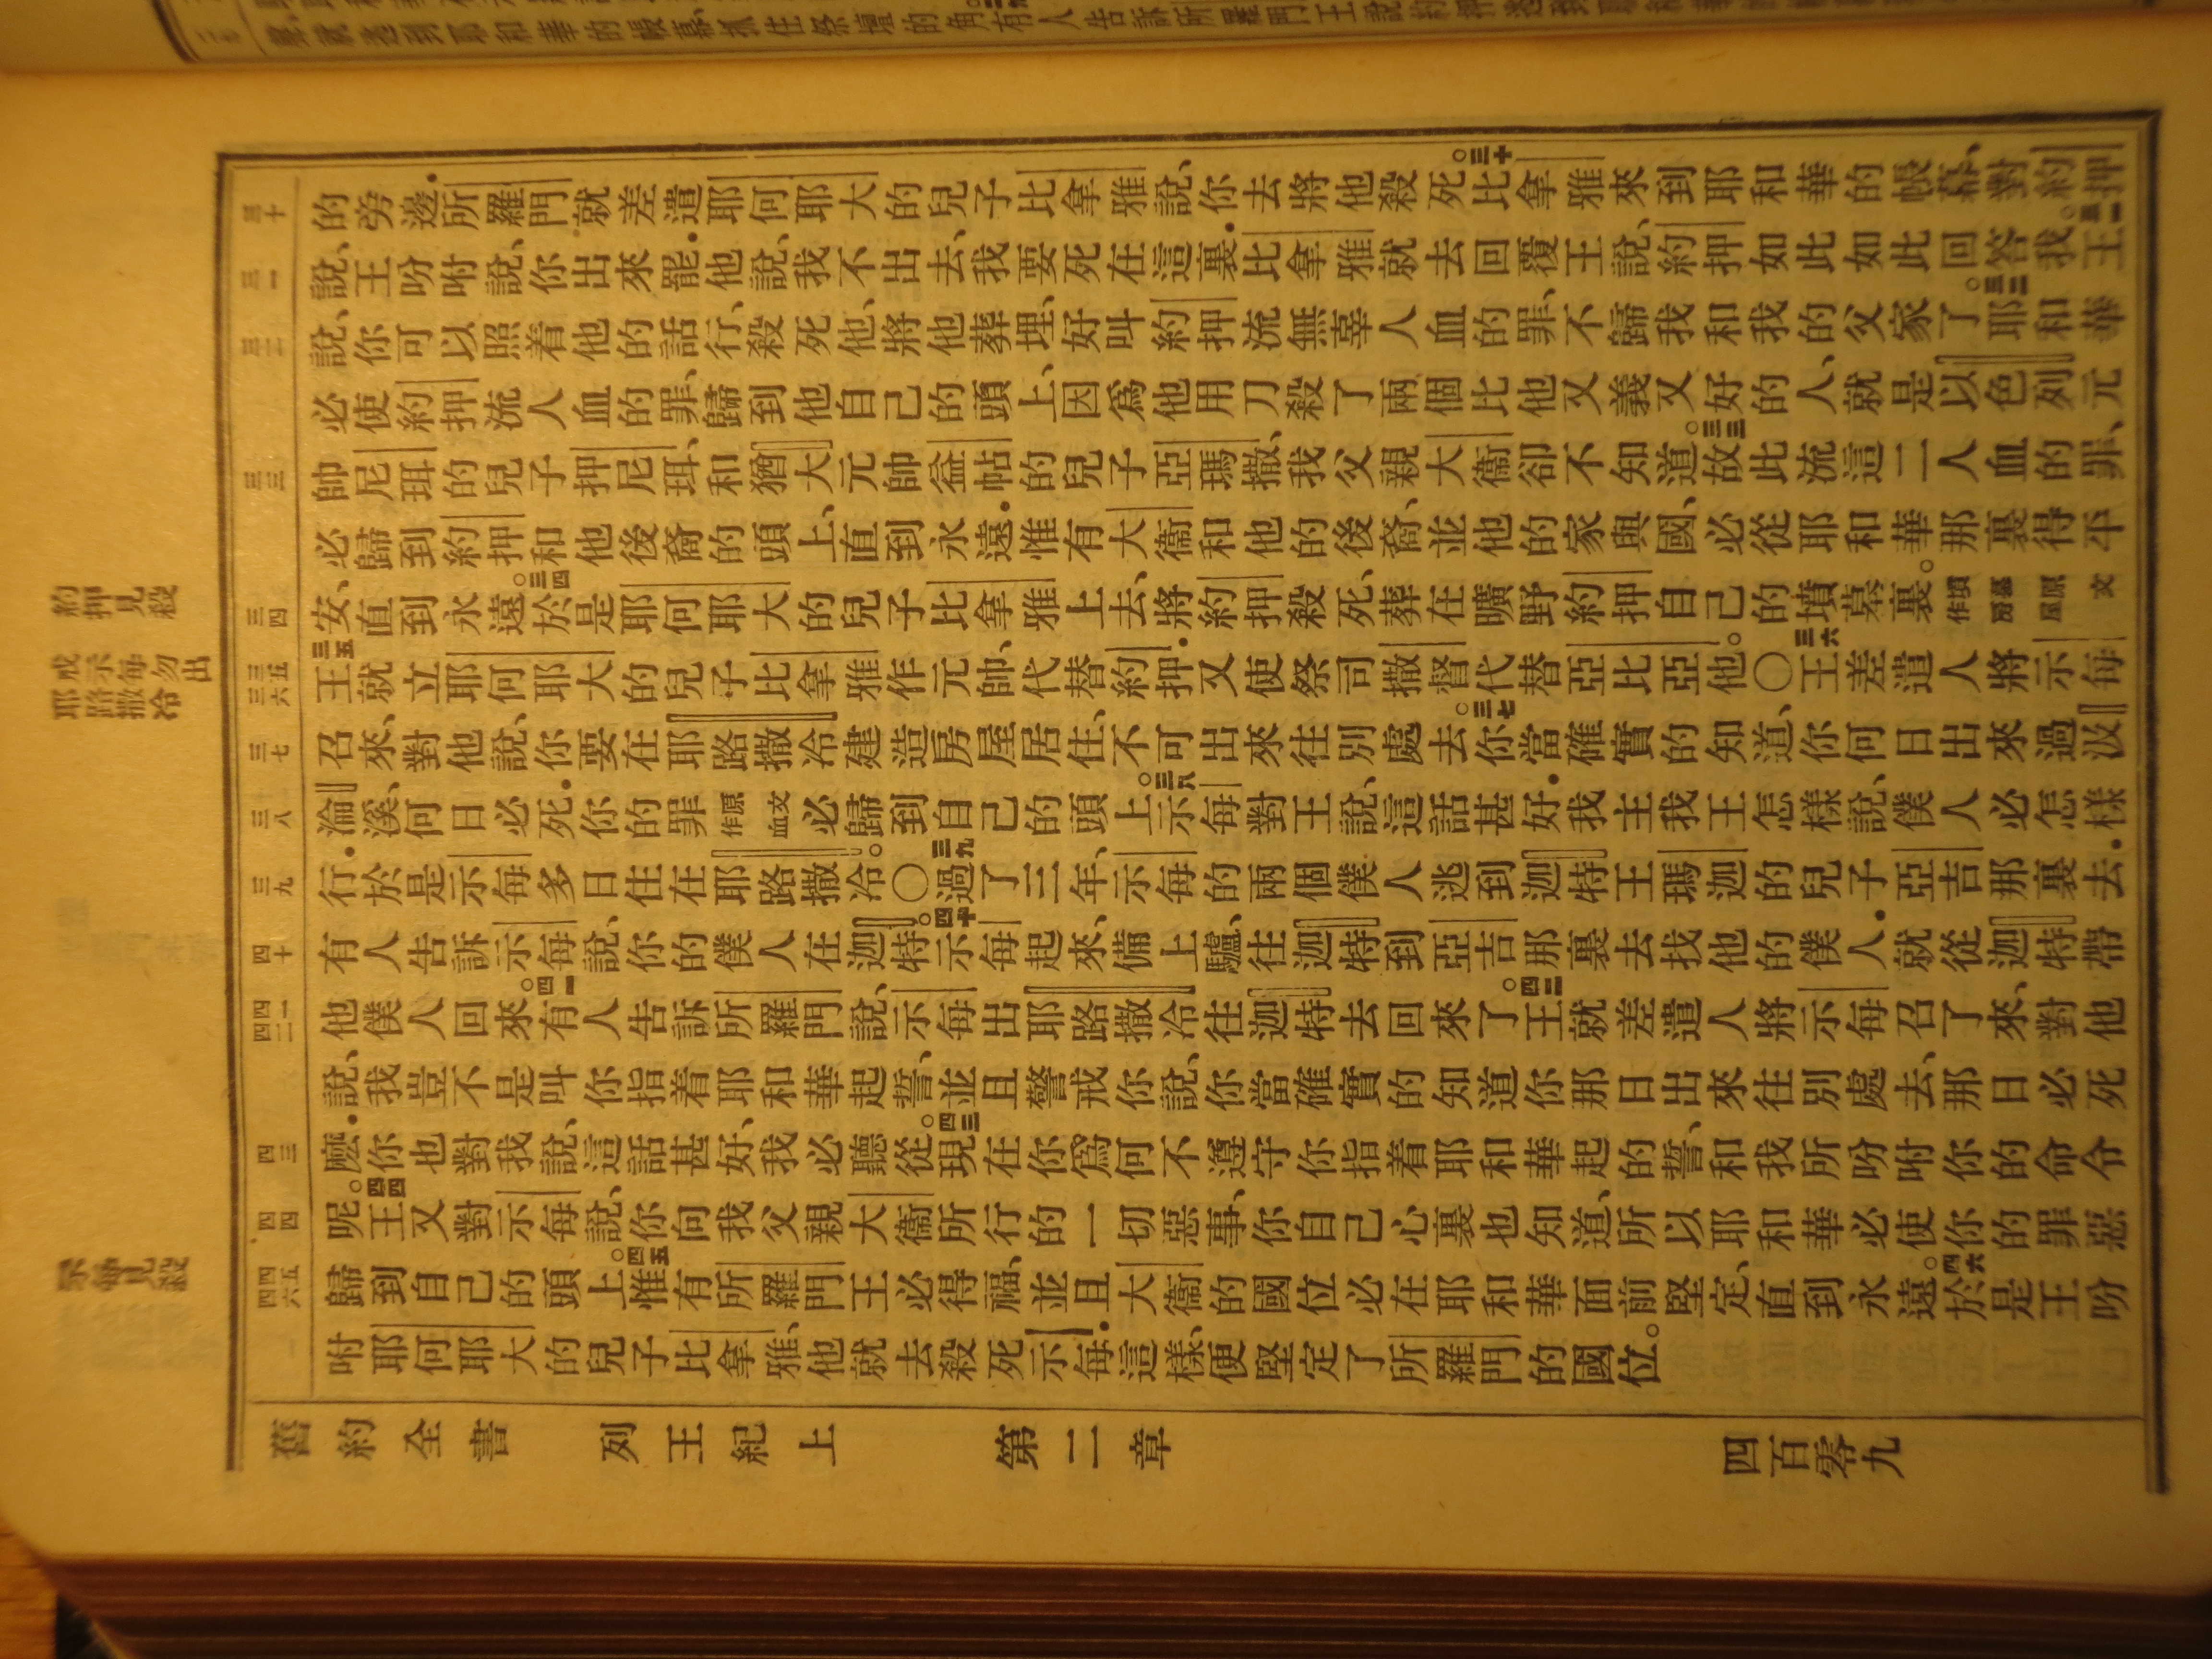 約押見殺
戒示每勿出
耶路撒冷
示每見殺
三十
三一
三二
三三
三四
三五
三六
三七
三八
三九
四十
四一
四二
四三
四四
四五
四六
的旁邊．所羅門就差遣耶何耶大的兒子比拿雅說、你去將他殺死。三十比拿雅來到耶和華的帳幕、對約押
說、王吩咐說、你出來罷．他說、我不出去、我要死在這裏．比拿雅就去回覆王說、約押如此如此回答我。三一王
說、你可以照着他的話行、殺死他、將他葬埋、好叫約押流無辜人血的罪、不歸我和我的父家了。三二耶和華
必使約押流人血的罪、歸到他自己的頭上、因爲他用刀殺了兩個比他又義又好的人、就是以色列元
帥尼珥的兒子押尼珥、和猶大元帥益帖的兒子亞瑪撒、我父親大衞卻不知道。三三故此流這二人血的罪、
必歸到約押和他後裔的頭上、直到永遠．惟有大衞和他的後裔、並他的家與國、必從耶和華那裏得平
安、直到永遠。三四於是耶何耶大的兒子比拿雅上去、將約押殺死、葬在曠野約押自己的墳墓裏。墳墓原文作房屋
三五王就立耶何耶大的兒子比拿雅作元帥、代替約押．又使祭司撒督代替亞比亞他。〇三六王差遣人將示每
召來、對他說、你要在耶路撒冷建造房屋居住、不可出來往別處去。三七你當確實的知道、你何日出來過汲
淪溪、何日必死．你的罪原文作血必歸到自己的頭上。三八示每對王說、這話甚好．我主我王怎樣說、僕人必怎樣
行．於是示每多日住在耶路撒冷。〇三九過了三年、示每的兩個僕人逃到迦特王瑪迦的兒子亞吉那裏去．
有人告訴示每說、你的僕人在迦特。四十示每起來、備上驢、往迦特到亞吉那裏去找他的僕人．就從迦特帶
他僕人回來。四一有人告訴所羅門說、示每出耶路撒冷往迦特去回來了。四二王就差遣人將示每召了來、對他
說、我豈不是叫你指着耶和華起誓、並且警戒你說、你當確實的知道你那日出來往別處去、那日必死
麽．你也對我說、這話甚好、我必聽從。四三現在你爲何不遵守你指着耶和華起的誓、和我所吩咐你的命令
呢。四四王又對示每說、你向我父親大衞所行的一切惡事、你自己心裏也知道、所以耶和華必使你的罪惡
歸到自己的頭上。四五惟有所羅門王必得福、並且大衞的國位必在耶和華面前堅定、直到永遠。四六於是王吩
咐耶何耶大的兒子比拿雅、他就去殺死示每．這樣、便堅定了所羅門的國位。
舊約全書　列王紀上　第二章　四百零九